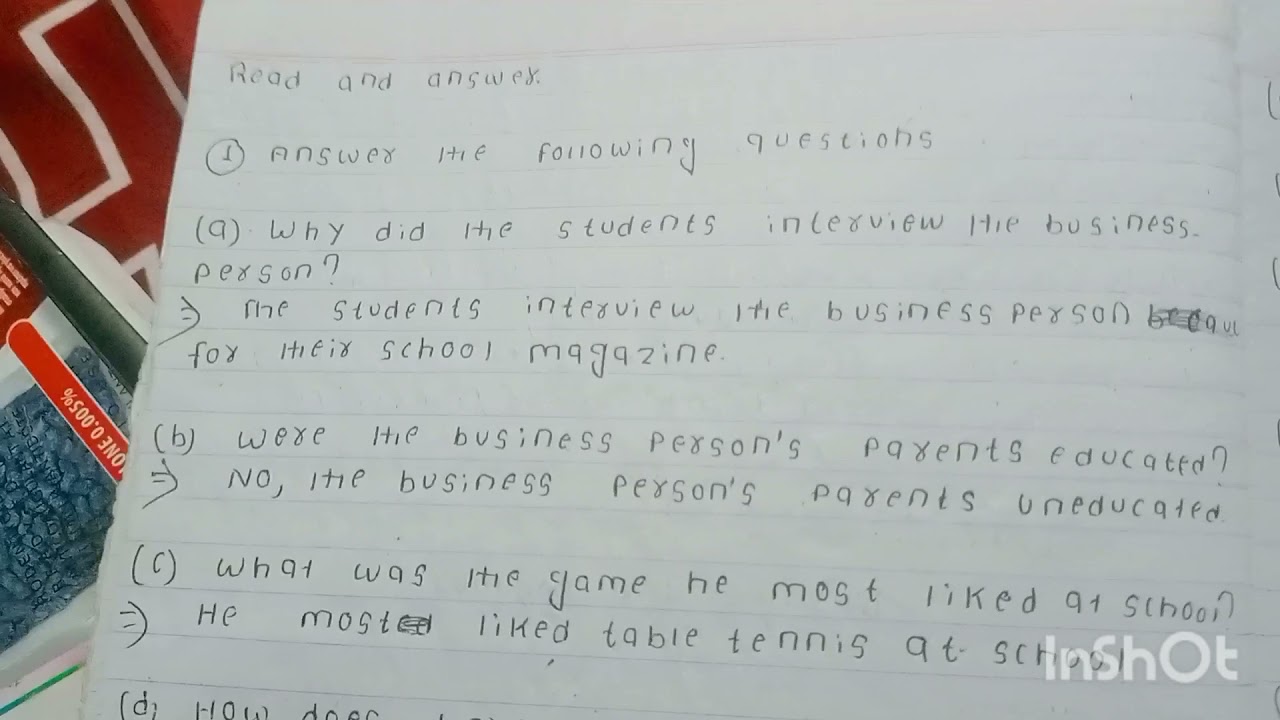 Read and answer.
① Answer the following questions
(a) Why did the students interview the business-
person?
⇒ The students interview the business person
for their school magazine.
(b) were the business person's parents educated?
⇒ NO, the business person's parents uneducated.
(c) what was the game he most liked at school?
⇒ He most liked table tennis at school
(d) How does
ONE 0.005%
InShOt